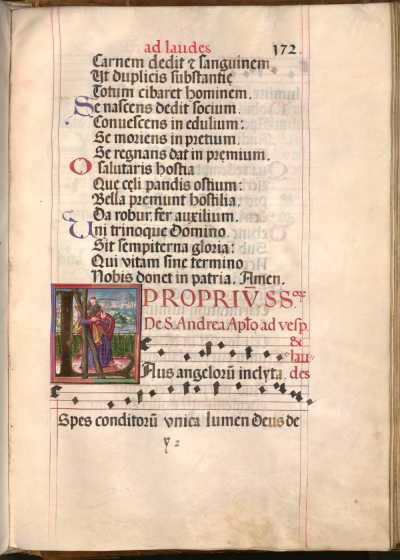 ad laudes 172
Carnem dedit ⁊ sanguinem
Ut duplicis substantie
Totum cibaret hominem.
Se nascens dedit socium.
Conuescens in edulium:
Se moriens in pretium.
Se regnans dat in premium.
O salutaris hostia
Que celi pandis ostium:
Bella premunt hostilia,
Da robur. fer auxilium.
Uni trinoque Domino
Sit sempiterna gloria:
Qui vitam sine termino
Nobis donet in patria. Amen.
PROPRIŪ SS
De S. Andrea Apło ad vesp.
& lau
des
Aus angelorū inclyta.
Spes conditorū vnica lumen Deus de